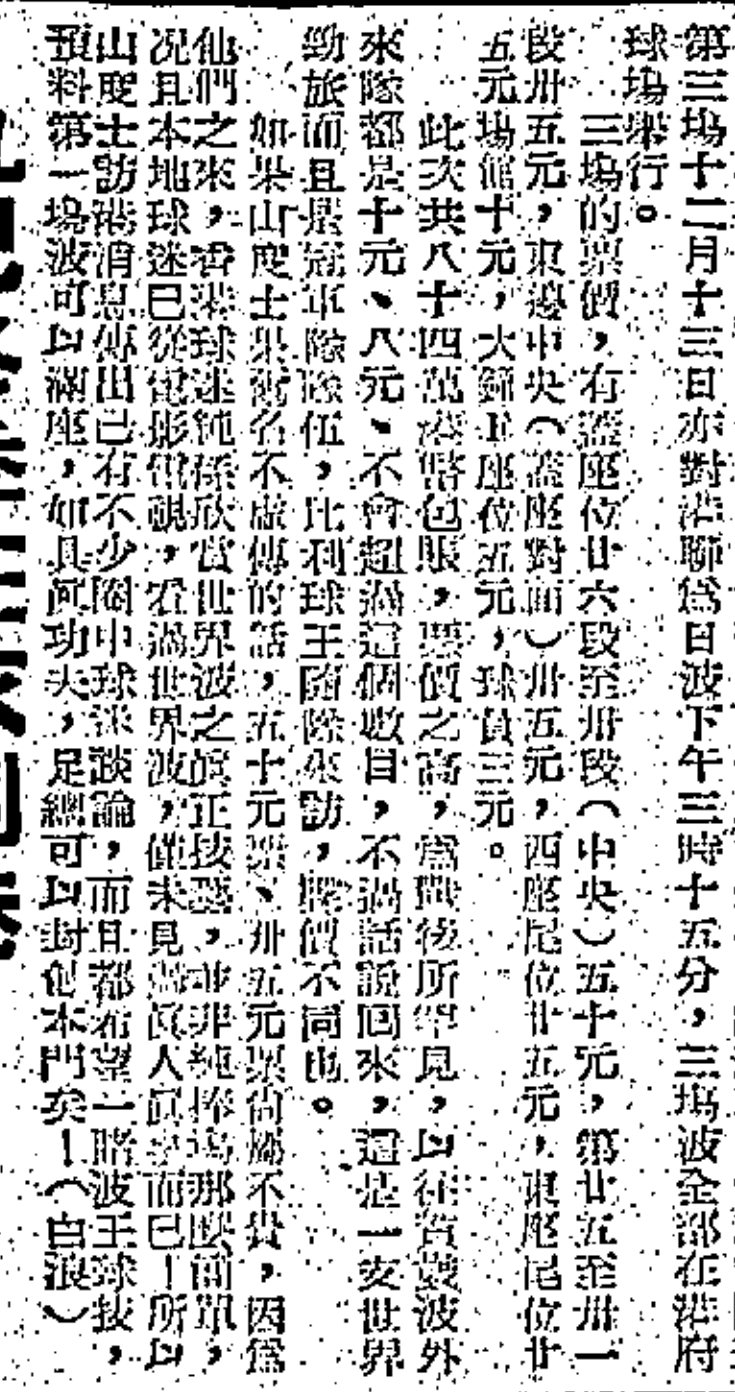 第三塲十二月十三日亦對港聯爲日波下午三時十五分，三塲波全部在港府
球塲舉行。
三塲的票價，有蓋座位廿六段至卅段（中央）五十元，第廿五至卅一
段卅五元，東邊中央（蓋座對面）卅五元，西座尾位廿五元，東座尾位廿
五元塲館十元，大鐘上座位五元，球員三元。
此次共八十四萬港幣包賬，票價之高，爲戰後所罕見，以往貧競波外
來隊都是十元、八元、不會超過這個數目，不過話說回來，這是一支世界
勁旅而且是冠軍隊隊伍，比利球王隨隊來訪，牌價不同也。
如果山度士果衝名不虛傳的話，五十元票、卅五元票尙屬不貴，因爲
他們之來，香港球迷純係欣賞世界波之眞正技藝，並非純捧塲那麽簡單，
况且本地球迷已從電影電視，看過世界波，僅未見過眞人眞而已！所以
山度士訪港消息傳出已有不少圈中球迷談論，而且都希望一睹波王球技，
預料第一塲波可以滿座，如具眞功夫，足總可以封個本門矣！（白浪）